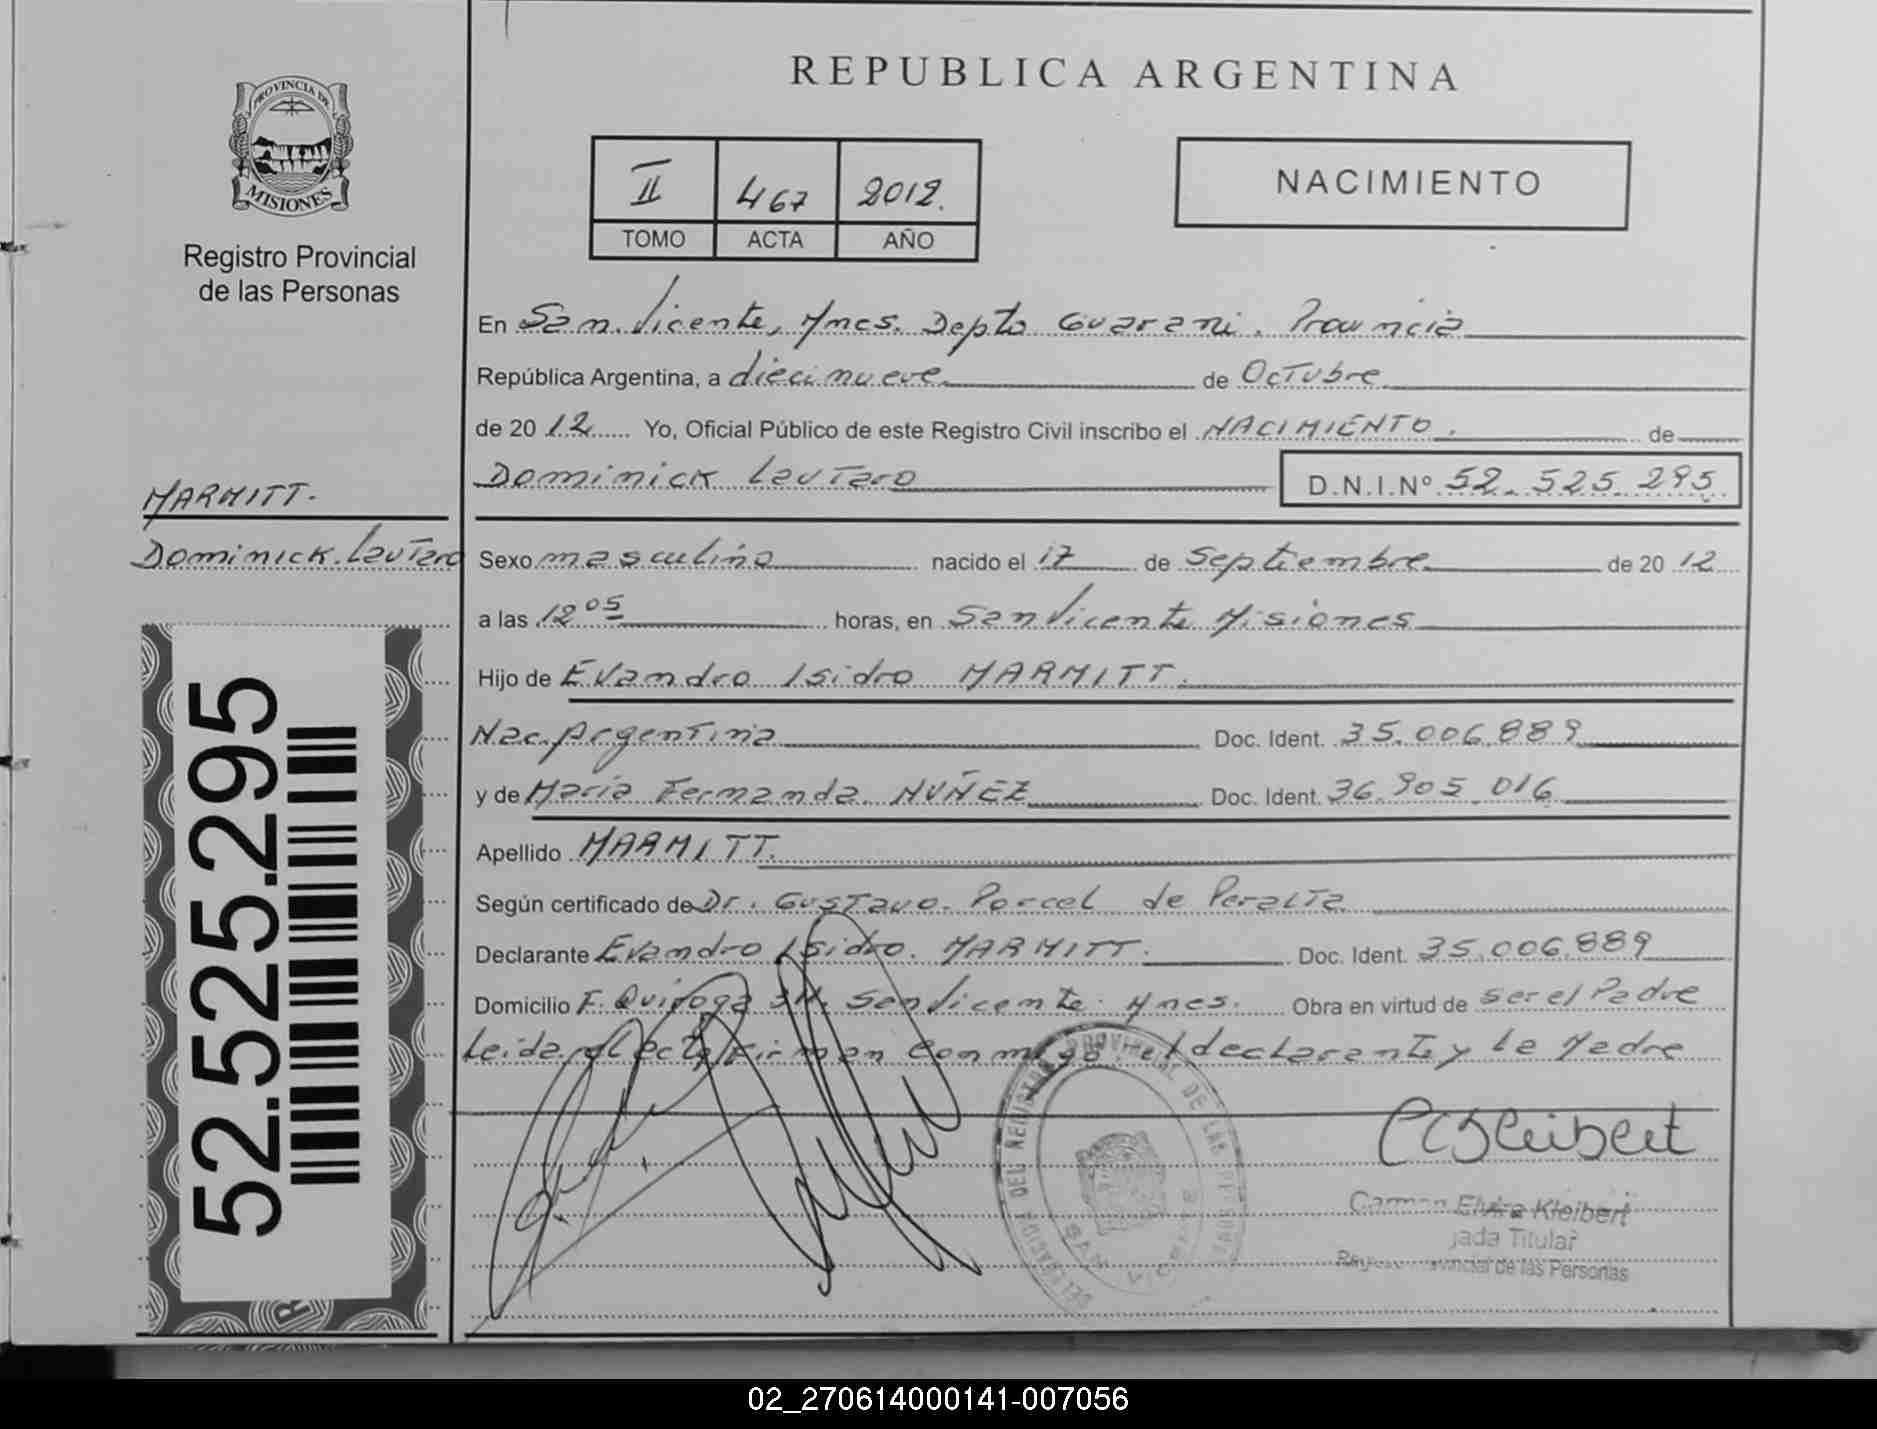 REPUBLICA ARGENTINA
PROVINCIA DE
MISIONES
Registro Provincial
de las Personas
II 467 2012.
TOMO ACTA AÑO
NACIMIENTO
En San Vicente, Mnes. Depto Guarani. Provincia
República Argentina, a diecinueve de Octubre
de 2012 Yo, Oficial Público de este Registro Civil inscribo el NACIMIENTO. de
Dominick Lautaro D.N.I.Nº 52.525.295
MARMITT.
Dominick Lautaro
Sexo masculino nacido el 17 de Septiembre de 2012
a las 12 05 horas, en San Vicente Misiones
Hijo de Evandro Isidro MARMITT.
Nac. Argentina Doc. Ident. 35.006.889
y de Maria Fernanda NUÑEZ Doc. Ident. 36.905.016
Apellido MARMITT.
Según certificado de Dr. Gustavo Porcel de Peralta
Declarante Evandro Isidro MARMITT. Doc. Ident. 35.006.889
Domicilio F. Quiroga San Vicente. Mnes. Obra en virtud de ser el Padre
Leida el acta firman conmigo el declarante y la Madre
52.525.295
DELEGACION DEL REGISTRO PROVINCIAL DE LAS PERSONAS
SAN VICENTE
CEKleibert
Carmen Elvira Kleibert
Titular
Provincial de las Personas
02_270614000141-007056